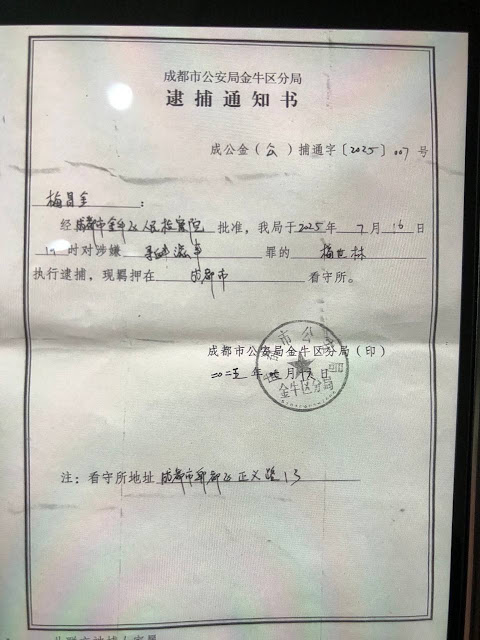 成都市公安局金牛区分局
逮捕通知书
成公金（公）捕通字〔2025〕007号
梅昌金：
经成都市金牛区人民检察院批准，我局于2025年7月16日
19时对涉嫌寻衅滋事罪的梅世林
执行逮捕，现羁押在成都市看守所。
成都市公安局金牛区分局（印）
二〇二五年七月十六日
金牛区分局
注：看守所地址成都市郫都区正义路1号